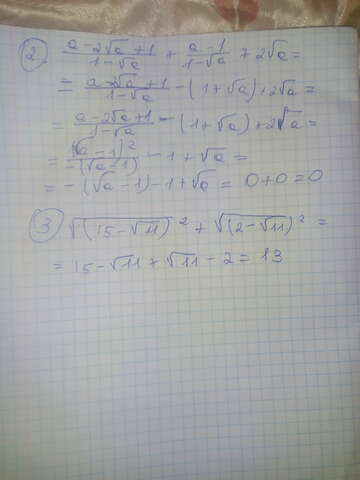 2. (a - 2√a + 1)/(1 - √a) + (a - 1)/(1 - √a) + 2√a =
= (a - 2√a + 1)/(1 - √a) - (1 + √a) + 2√a =
= (a - 2√a + 1)/(1 - √a) - (1 + √a) + 2√a =
= (√a - 1)²/(-(√a - 1)) - 1 + √a =
= -(√a - 1) - 1 + √a = 0 + 0 = 0
3 √(15 - √11)² + √(2 - √11)² =
= 15 - √11 + √11 - 2 = 13